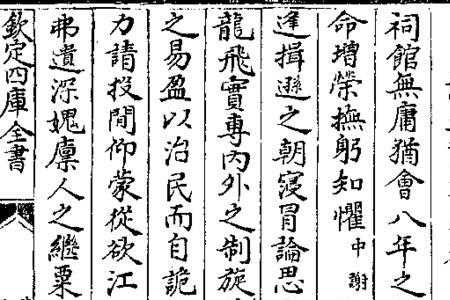 祠館無庸猶會八年之
命增榮撫躬知懼中謝
逢揖遜之朝寖冒論思
龍飛實專内外之制旋
之易盈以治民而自詭
力請投間仰蒙從欲江
弗遺深媿廩人之繼粟
欽定四庫全書